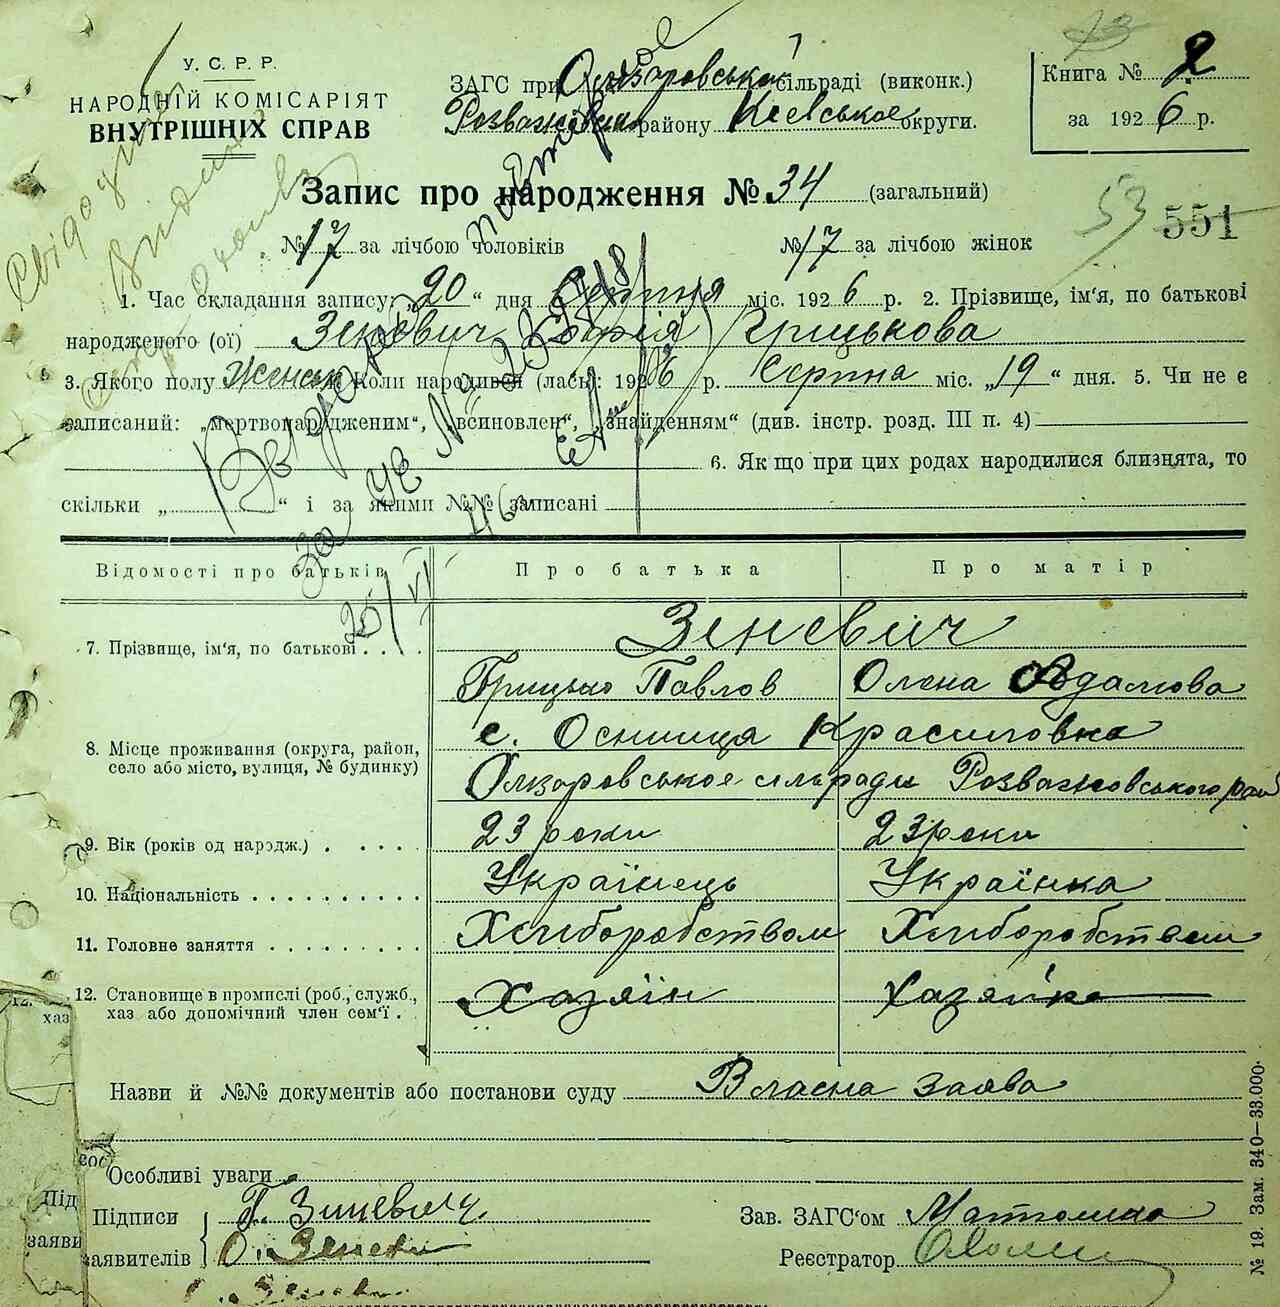 У. С. Р. Р.
НАРОДНІЙ КОМІСАРІЯТ
ВНУТРІШНІХ СПРАВ
ЗАГС при сільраді (виконк.)
району Києвськоє округи.
Книга № 2
за 1926 р.
Запис про народження № 34 (загальний)
53 551
№ 17 за лічбою чоловіків № 17 за лічбою жінок
1. Час складання запису: „20“ дня Серпня міс. 1926 р. 2. Прізвище, ім'я, по батькові
народженого (ої) Зеневич Софія Грицькова
3. Якого полу Женськ Коли народився (лась): 1926 р. Серпна міс. „19“ дня. 5. Чи не є
записаний: „мертвонародженим“, „всиновлен“, „знайденням“ (див. інстр. розд. III п. 4)
6. Як що при цих родах народилися близнята, то
скільки „ “ і за якими №№ записані
Відомості про батьків Про батька Про матір
7. Прізвище, ім'я, по батькові Зеневич
Грицько Павлов Олена Адамова
8. Місце проживання (округа, район, село або місто, вулиця, № будинку) с. Осниця Красиловка
сільради Розважовського рай
9. Вік (років од народж.) 23 роки 23 роки
10. Національність Українець Українка
11. Головне заняття Хліборобством Хліборобством
12. Становище в промислі (роб., служб., хаз або допомічний член сем'ї. Хазяїн Хазяйка
Назви й №№ документів або постанови суду Власна заява
Особливі уваги
Підписи Г. Зиневич Зав. ЗАГС'ом
заявителів О. Зеневич Реєстратор
№ 19. Зам. 340—33.000.